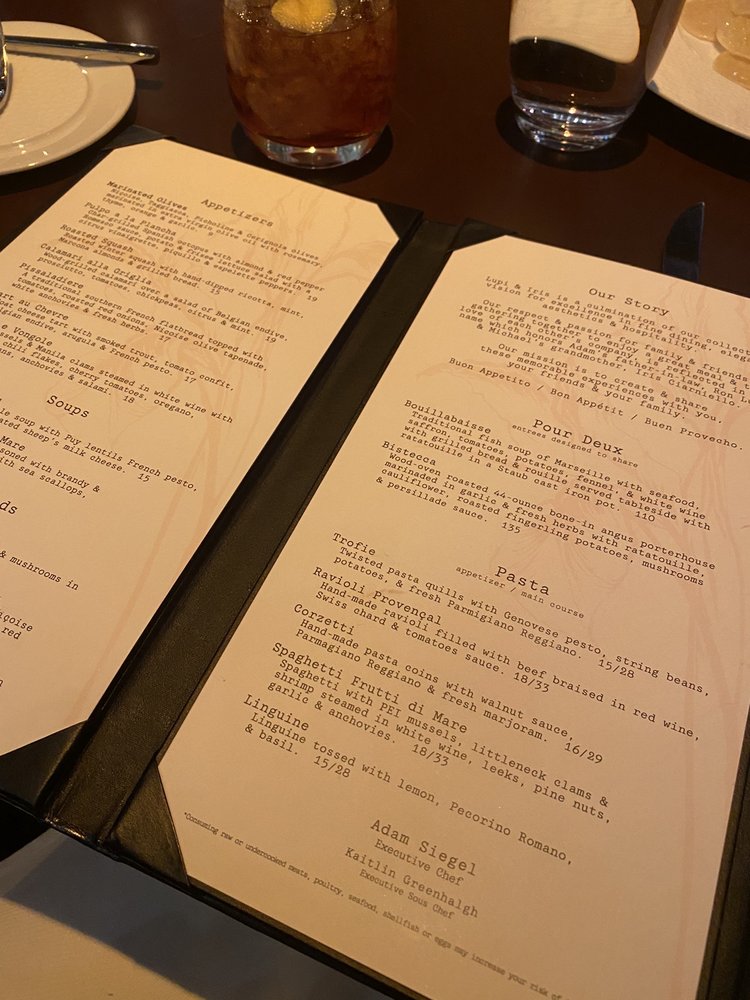 Appetizers
Marinated Olives
Niçoise, Taggiasca, Picholine & Cerignola olives
marinated in extra virgin olive oil with rosemary,
thyme, orange & garlic. 9
Pulpo a la Plancha
Char-grilled Spanish octopus with almond & red pepper
Romesco sauce, potato & frisee lettuce salad with
citrus vinaigrette, piquillo & espelette peppers. 19
Roasted Squash
Roasted winter squash with hand dipped ricotta, mint,
Marcona almonds & grilled bread. 15
Calamari alla Griglia
Wood-grilled calamari over a salad of Belgian endive,
prosciutto, tomatoes, chickpeas, citrus & mint. 19
Pissaladiere
A traditional southern French flatbread topped with
tomatoes, roasted red onions, Nicoise olive tapenade,
white anchovies & fresh herbs. 17
art au Chevre
oat cheese tart with smoked trout, tomato confit,
elgian endive, arugula & French pesto. 17
e Vongole
ssels & Manila clams steamed in white wine with
chili flakes, cherry tomatoes, oregano,
ns, anchovies & salami. 18
Soups
le soup with Puy lentils French pesto,
ated sheep's milk cheese. 15
Mare
soned with brandy &
with sea scallops,
ds
& mushrooms in
içoise
red
Our Story
Lupi & Iris is a culmination of our collect
vision for excellence in fine dining, elega
aesthetics & hospitality.
Our respect & passion for family & friends
gathering together to enjoy a great meal & t
love of each other's company, is reflected in
name with Adam's father-in-law, Ron Lu
& Michael's grandmother, Iris Ciarniello.
Our mission is to create & share
these memorable experiences with you,
your friends & your family.
Buon Appetito / Bon Appétit / Buen Provecho.
Pour Deux
entrees designed to share
Bouillabaisse
Traditional fish soup of Marseille with seafood,
saffron, tomatoes, potatoes, fennel, & white wine
with grilled bread & rouille served tableside with
ratatouille in a Staub cast iron pot. 110
Bistecca
Wood-oven roasted 44-ounce bone-in angus porterhouse
marinaded in garlic & fresh herbs with ratatouille,
cauliflower, roasted fingerling potatoes, mushrooms
& persillade sauce. 135
Pasta
appetizer / main course
Trofie
Twisted pasta quills with Genovese pesto, string beans,
potatoes, & fresh Parmigiano Reggiano. 15/28
Ravioli Provençal
Hand-made ravioli filled with beef braised in red wine,
Swiss chard & tomatoes sauce. 18/33
Corzetti
Hand-made pasta coins with walnut sauce,
Parmagiano Reggiano & fresh marjoram. 16/29
Spaghetti Frutti di Mare
Spaghetti with PEI mussels, littleneck clams &
shrimp steamed in white wine, leeks, pine nuts,
garlic & anchovies. 18/33
Linguine
Linguine tossed with lemon, Pecorino Romano,
& basil. 15/28
Adam Siegel
Executive Chef
Kaitlin Greenhalgh
Executive Sous Chef
*Consuming raw or undercooked meats, poultry, seafood, shellfish or eggs may increase your risk of